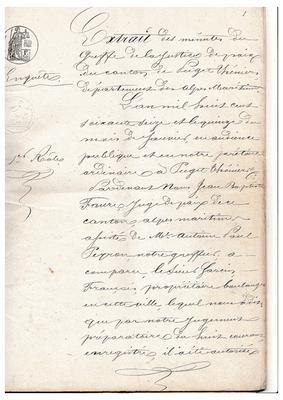 1
Extrait des minutes du
Greffe de la Justice de paix
du canton de Puget Théniers
département des Alpes Maritimes
Enquête
L'an mil huit cent
soixante seize et le quinze du
mois de Janvier, en audience
publique et en notre prétoire
ordinaire à Puget Théniers
Pardevant Nous Jean Baptiste
Faure Juge de paix de ce
canton alpes maritimes
assisté de Me Antoine Paul
Peyron notre greffier, a
comparu, le sieur
François propriétaire boulanger
en cette ville lequel nous a dit
que par notre Jugement
préparatoire du huit courant
enregistré il a été autorisé